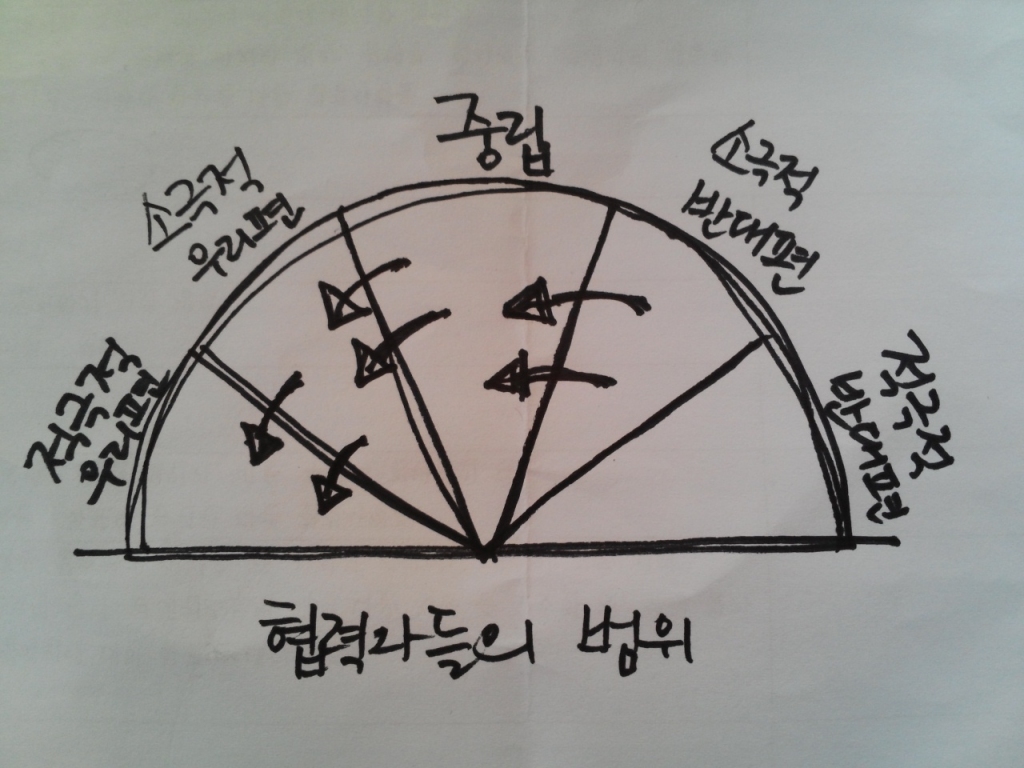 적극적
우리편
소극적
우리편
중립
소극적
반대편
적극적
반대편
협력자들의 범위